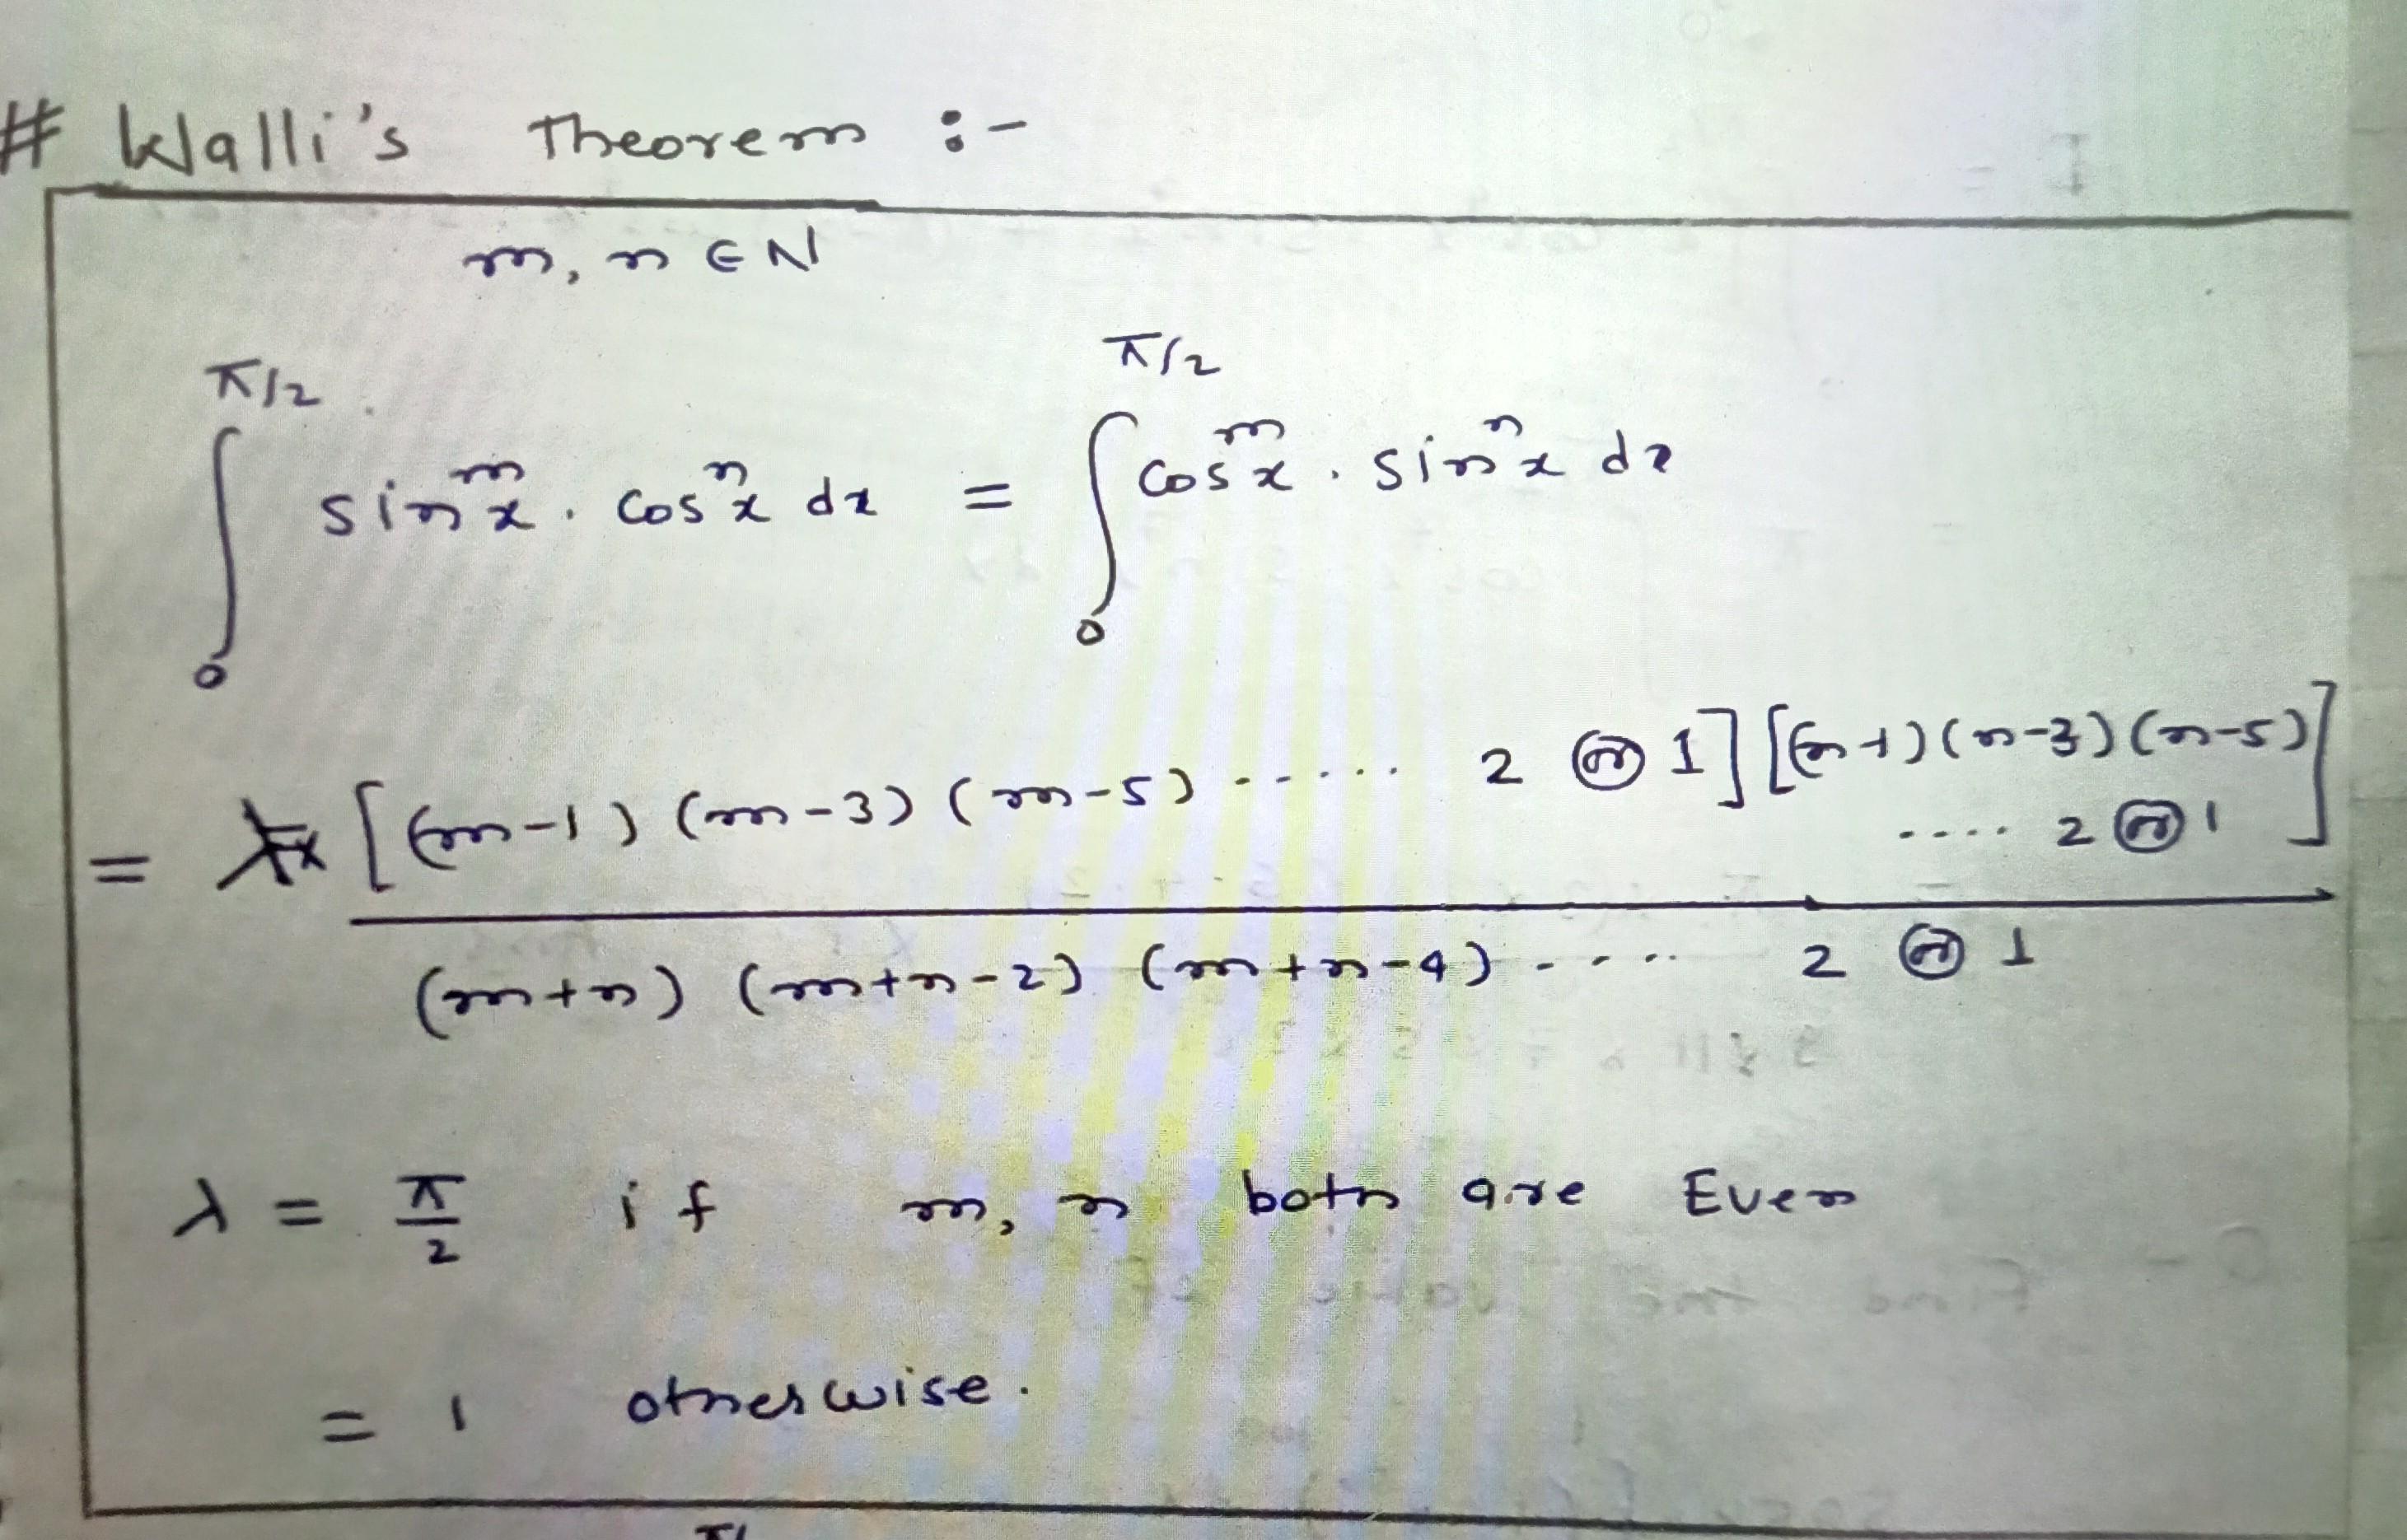 # Walli's Theorem :-
m, n ∈ N
π/2 π/2
∫ sin^m x . cos^n x dx = ∫ cos^m x . sin^n x dx
0 0
= λ x [(m-1) (m-3) (m-5) ..... 2 or 1] [(n-1) (n-3) (n-5)
.... 2 or 1]
(m+n) (m+n-2) (m+n-4) .... 2 or 1
λ = π/2 if m, n both are Even
= 1 otherwise.